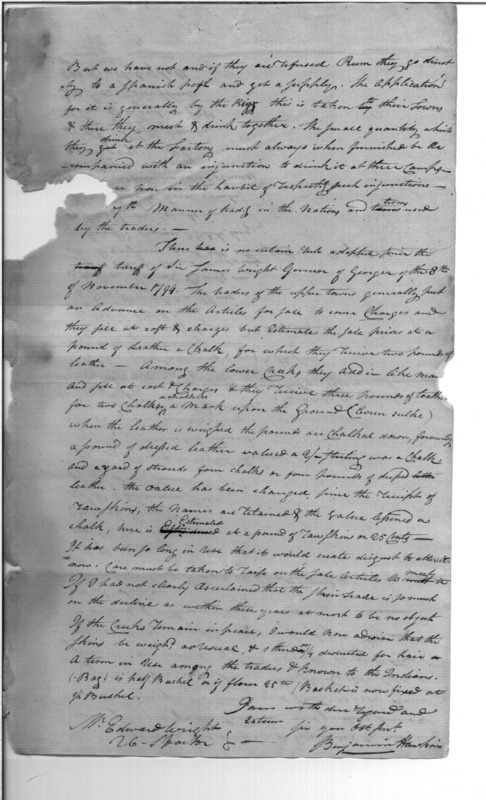 But we have not and if they are refused Rum they go direct
ly to a Spanish post and get a supply. The Application
for it is generally by the this is taken to their Towns
& there they meet & drink together. The small quantity which
they drink at the Factory must always when furnished be Ac
companied with an injunction to drink it at their Camps
now in the habit of respecting such injunctions —
of the Manner of trade in the Nations and terms used
by the traders. —
There is no certain rule adopted since the
tariff of Sir James Wright Governor of Georgia of the 8th
of November 1794. The traders of the upper towns generally put
an Advance on the Articles for sale to cover Charges and
they sell at cost & charges but Estimate the sale prices at a
pound of Leather a Chalk, for which they receive two pounds of
leather — Among the lower Creeks they Add in like man
and sell at cost & Charges & they receive three pounds of leather
for two Chalks, a Mark upon the Ground
When the leather is weighed the pounds are Chalked down, formerly
a pound of dressed leather valued a 2/ sterling was a Chalk
and a yard of strouds four chalks or four pounds of dressed
leather. the value has been changed since the receipt of
rawskins, the Names are retained & the Value lessened a
chalk, here is Estimated at a pound of rawskins or 25 Cents —
It has been so long in Use that it would create disgust to alter it
now. Care must be taken to raise on the sale Articles to meet it
If I had not clearly Ascertained that the skin trade is so much
on the decline as within three years at most to be no object
If the Creeks remain in peace, I would now advise that the
skins be weighd as usual, & deducted for hair a
A term in Use among the traders & known to the Indians.
(Bag) is half Bushel Basket is now fixed at
½ Bushel.
I am with due regard and
esteem
Sir your Obt. Sert.
Mr. Edward Wright
Benjamin Hawkins